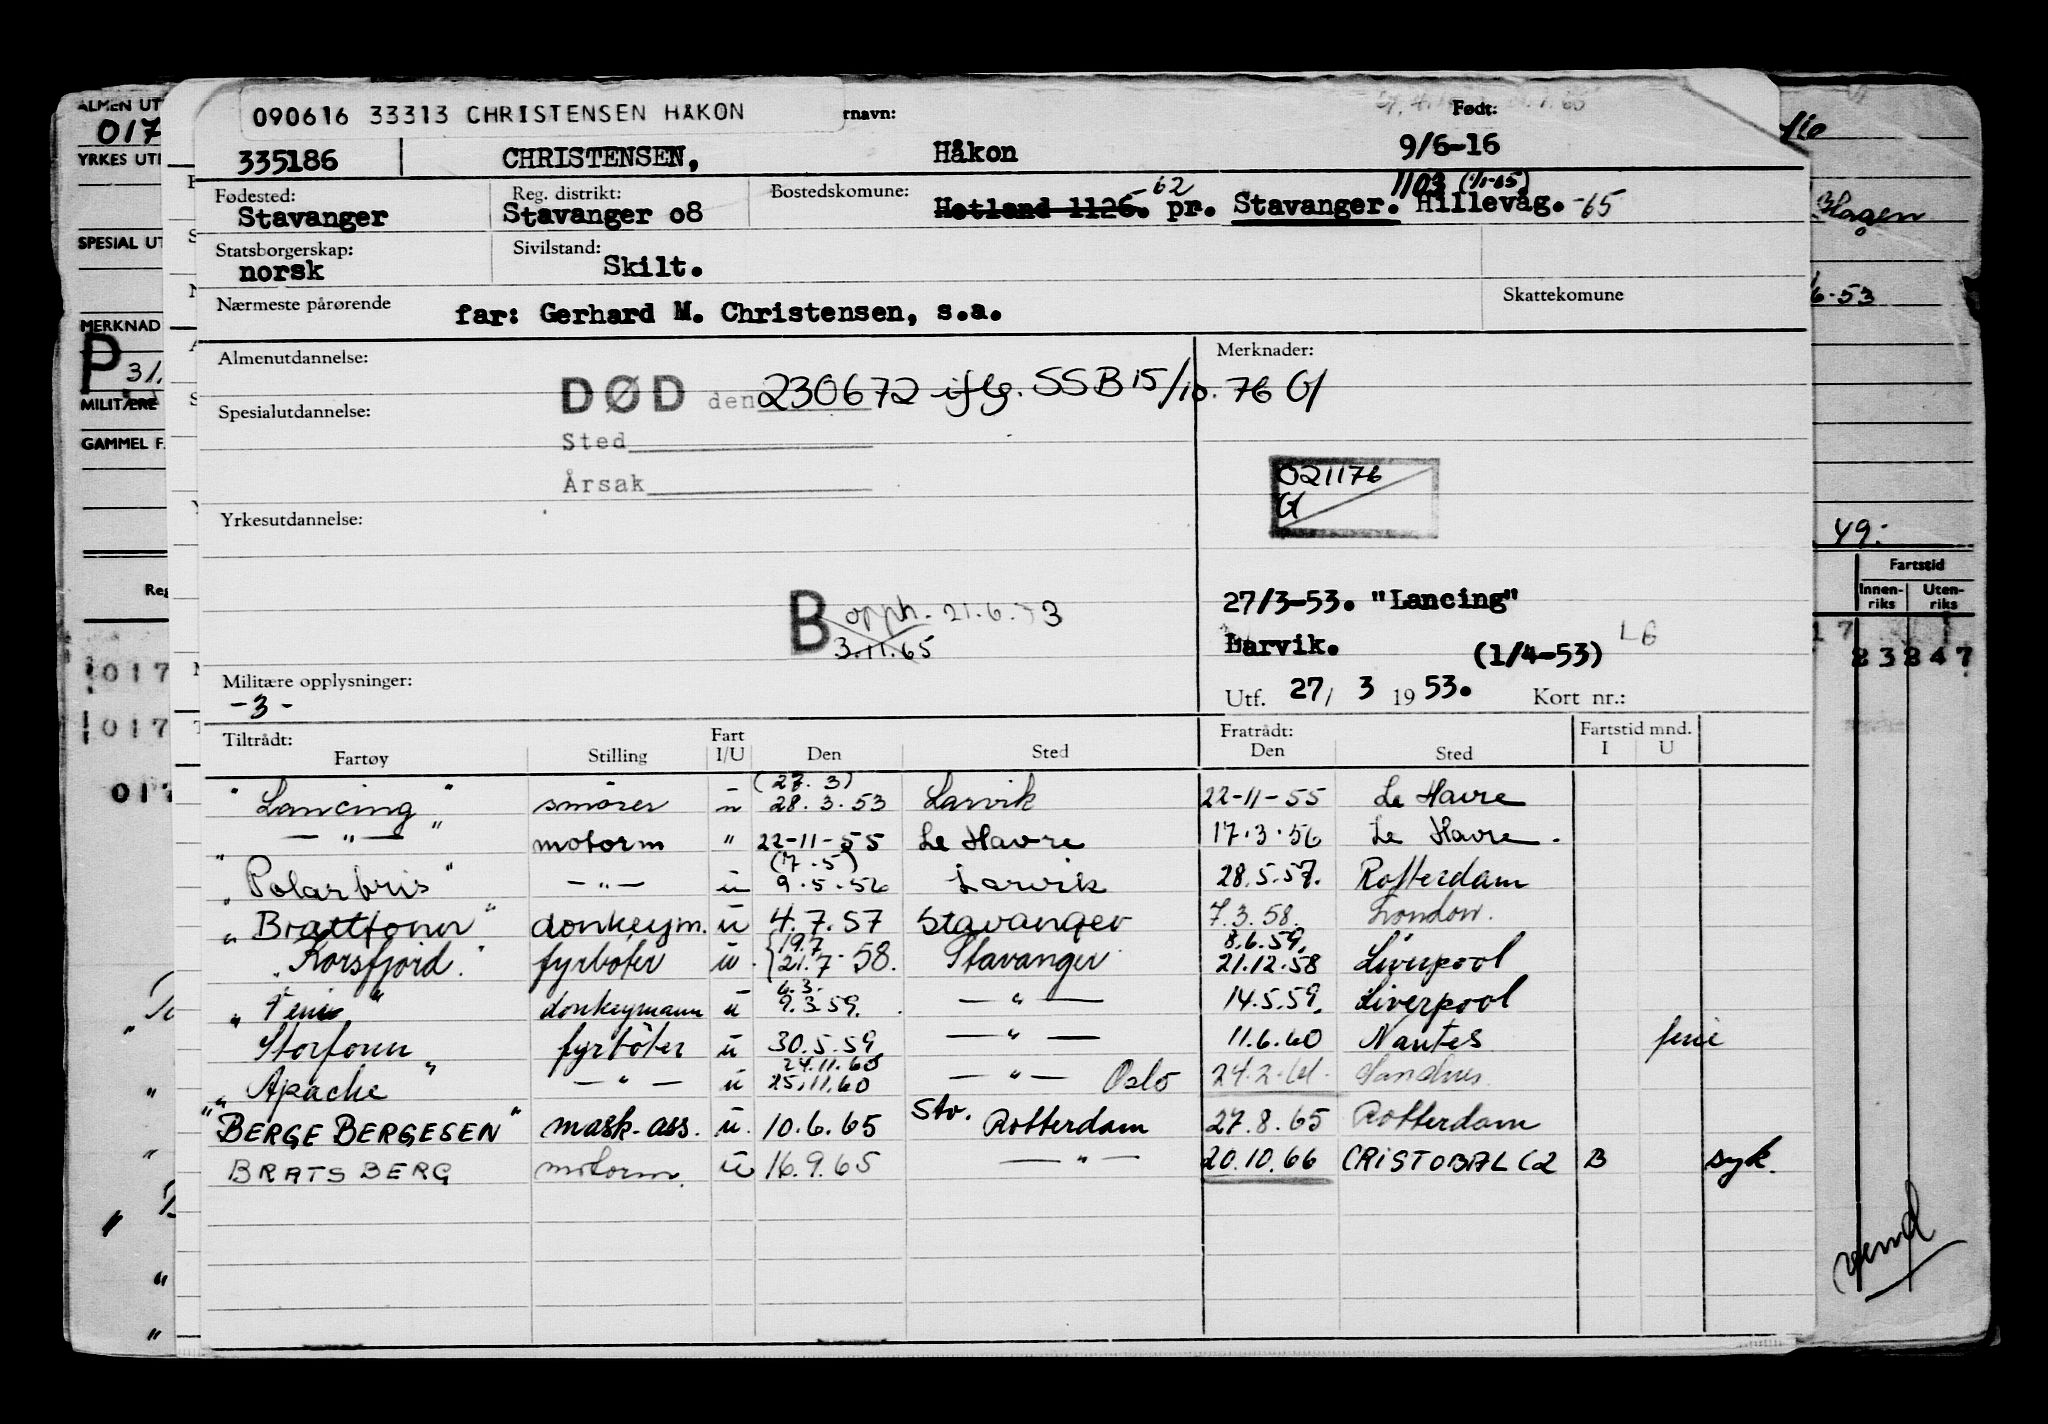 090616 33313 CHRISTENSEN HÅKON
rnavn:
Født:
335186 CHRISTENSEN, Håkon 9/6-16
Fødested: Reg. distrikt: Bostedskomune: 62 1103
Stavanger Stavanger o8 Hetland 1126. pr. Stavanger. Hillevåg. -65
Statsborgerskap: Sivilstand:
norsk Skilt.
Nærmeste pårørende Skattekomune
far: Gerhard M. Christensen, s.a.
Almenutdannelse: Merknader:
DØD den 230672 iflg. SSB 15/10. 76 G
Spesialutdannelse:
Sted
Årsak
021176
G
Yrkesutdannelse:
B opph. 21.6.73
3.11.65
27/3-53. "Lancing"
Larvik. (1/4-53) LG
Militære opplysninger:
-3-
Utf. 27/ 3 1953. Kort nr.:
Tiltrådt: Fart Fratrådt: Fartstid mnd.
Fartøy Stilling I/U Den Sted Den Sted I U
(27.3)
"Lancing" smører u 28.3.53 Larvik 22-11-55 Le Havre
— " — motorm " 22-11-55 Le Havre 17.3.56 Le Havre.
(7.5)
"Polarbris" — " — u 9.5.56 Larvik 28.5.57. Rotterdam
"Brattfonn" donkeym. u 4.7.57 Stavanger 7.3.58. London.
19.7 8.6.59.
"Korsfjord." fyrbøter u. 21.7 58. Stavanger 21.12.58 Liverpool
6.3.
donkeymann u 9.3.59. — " — 14.5.59. Liverpool
"Storfonn" fyrbøter u 30.5.59 — " — 11.6.60 Nantes ferie
24.11.60
"Apache — " — u 25.11.60 — " — Oslo 24.2.61.
"BERGE BERGESEN" mask-ass. u. 10.6.65 Stv. Rotterdam 27.8.65 Rotterdam
BRATSBERG motorm. u 16.9.65 — " — 20.10.66 CRISTOBAL CZ B syk.
ALMEN UT
017
YRKES UT
SPESIAL UT
MERKNAD
P 31.
MILITÆRE
GAMMEL F.
Reg
017
017
017
Hagen
6-53
49:
Fartstid
Innen-
riks
Uten-
riks
17
83 847
vend